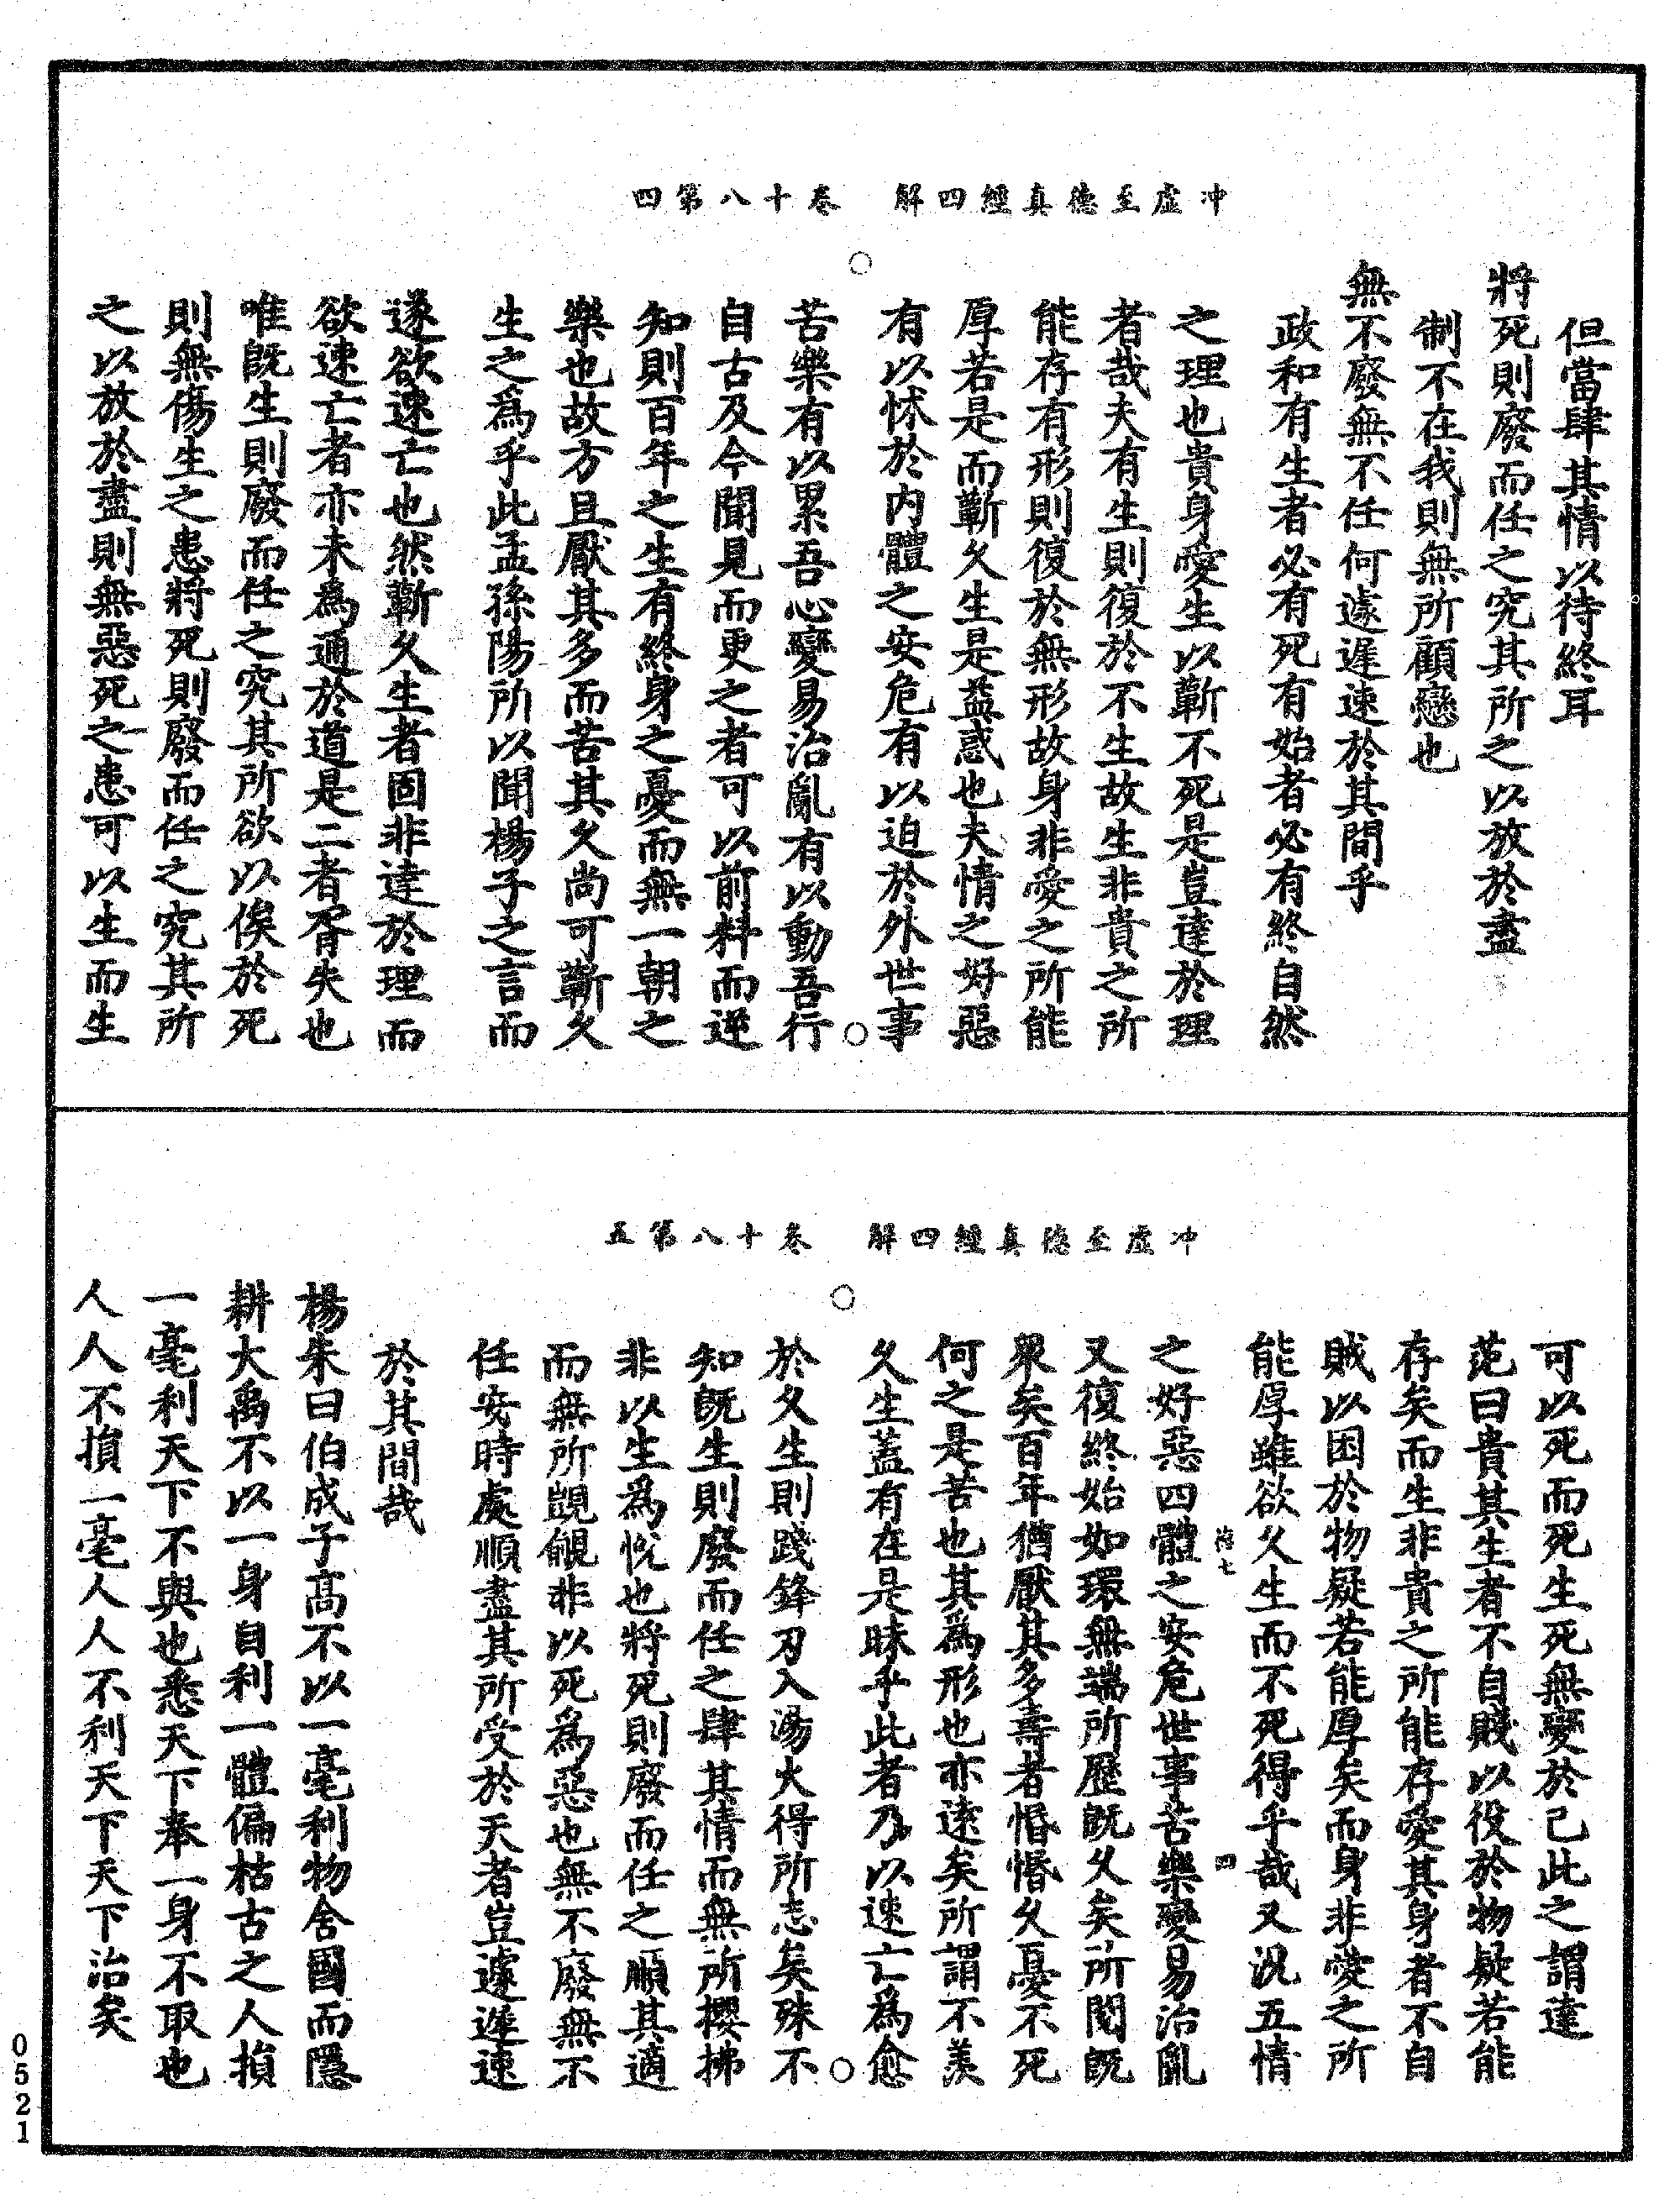 冲虛至德真經四解　卷十八第四
但當肆其情以待終耳
將死則廢而任之究其所之以放於盡
制不在我則無所顧戀也
無不廢無不任何遽遲速於其間乎
政和有生者必有死有始者必有終自然
之理也貴身愛生以蘄不死是豈達於理
者哉夫有生則復於不生故生非貴之所
能存有形則復於無形故身非愛之所能
厚若是而蘄久生是益惑也夫情之好惡
有以怵於内體之安危有以迫於外世事
苦樂有以累吾心變易治亂有以動吾行
自古及今聞見而更之者可以前料而逆
知則百年之生有終身之憂而無一朝之
樂也故方且厭其多而苦其久尚可蘄久
生之爲乎此孟孫陽所以聞楊子之言而
遂欲速亡也然蘄久生者固非達於理而
欲速亡者亦未爲通於道是二者胥失也
唯旣生則廢而任之究其所欲以俟於死
則無傷生之患將死則廢而任之究其所
之以放於盡則無惡死之患可以生而生
冲虛至德真經四解　卷十八第五
可以死而死生死無變於己此之謂達
范曰貴其生者不自賤以役於物疑若能
存矣而生非貴之所能存愛其身者不自
賊以困於物疑若能厚矣而身非愛之所
能厚雖欲久生而不死得乎哉又況五情
四
之好惡四體之安危世事苦樂變易治亂
又復終始如環無端所歷旣久矣所閱旣
衆矣百年猶厭其多壽者惛惛久憂不死
何之是苦也其爲形也亦遠矣所謂不羨
久生蓋有在是昧乎此者乃以速亡爲愈
於久生則踐鋒刃入湯火得所志矣殊不
知旣生則廢而任之肆其情而無所攖拂
非以生爲悅也將死則廢而任之順其適
而無所覬覦非以死爲惡也無不廢無不
任安時處順盡其所受於天者豈遽遲速
於其間哉
楊朱曰伯成子高不以一毫利物舍國而隱
耕大禹不以一身自利一體偏枯古之人損
一毫利天下不與也悉天下奉一身不取也
人人不損一毫人人不利天下天下治矣
0521